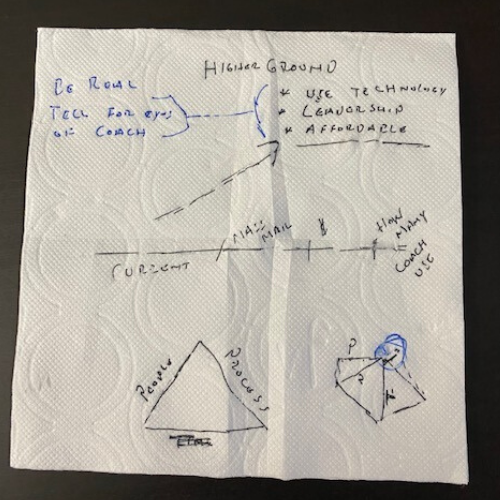 HIGHER GROUND
BE REAL
TELL FOR EYES
OF COACH
* USE TECHNOLOGY
* LEADERSHIP
* AFFORDABLE
CURRENT
MASS
MAIL
$
HOW
MANY
COACH
USE
PEOPLE
PROCESS
P